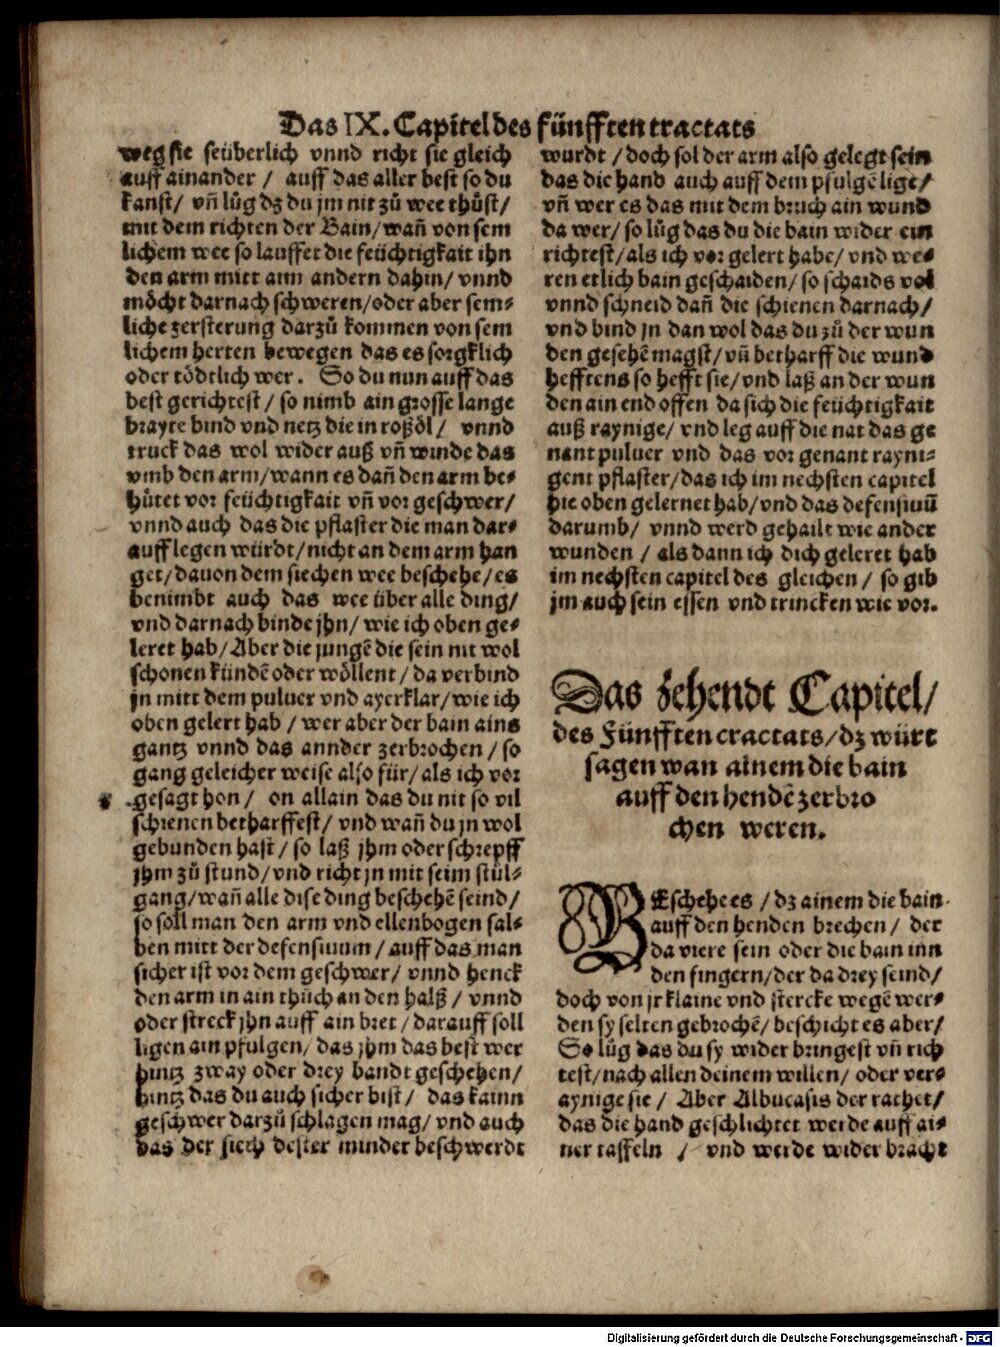 Das IX. Capitel des fünfften tractats
weg sie seüberlich vnnd richt sie gleich
auff ainander / auff das aller best so du
kanst / vn̄ lůg dz du jm nit zů wee thůst /
mit dem richten der Bain / wañ von sem
lichem wee so lauffet die feüchtigkait ihn
den arm mitt aim andern dahin / vnnd
möcht darnach schweren / oder aber sem⸗
liche zersterung darzů kommen von sem
lichem herten bewegen das es sorgklich
oder tödtlich wer. So du nun auff das
best gerichtest / so nimb ain grosse lange
brayte bind vnd netz die in roßöl / vnnd
truck das wol wider auß vn̄ winde das
vmb den arm / wann es dañ den arm be⸗
hütet vor feüchtigkait vn̄ vor geschwer /
vnnd auch das die pflaster die man dar⸗
auff legen würdt / nicht an dem arm han
get / dauon dem siechen wee beschehe / es
benimbt auch das wee über alle ding /
vnd darnach binde jhn / wie ich oben ge⸗
leret hab / Aber die jungē die sein nit wol
schonen kündē oder wöllent / da verbind
jn mitt dem puluer vnd ayerklar / wie ich
oben gelert hab / wer aber der bain ains
gantz vnnd das annder zerbrochen / so
gang geleicher weise also für / als ich vor
gesagt hon / on allain das du nit so vil
schienen betharffest / vnd wañ du jn wol
gebunden hast / so laß jhm oder schrepff
jhm zů stund / vnd richt jn mit seim stůl⸗
gang / wañ alle dise ding beschehē seind /
so soll man den arm vnd ellenbogen sal⸗
ben mitt der defensiuum / auff das man
sicher ist vor dem geschwer / vnnd henck
den arm in ain thůch an den halß / vnnd
oder streck jhn auff ain bret / darauff soll
ligen ain pfulgen / das jhm das best wer
hintz zway oder drey bandt geschehen /
hintz das du auch sicher bist / das kainn
geschwer darzů schlagen mag / vnd auch
das der siech dester minder beschwerdt
wurdt / doch sol der arm also gelegt sein
das die hand auch auff dem pfulgē lige /
vn̄ wer es das mit dem bruch ain wund
da wer / so lůg das du die bain wider ein
richtest / als ich vor gelert habe / vnd we⸗
ren etlich bain geschaiden / so schaids vol
vnnd schneid dañ die schienen darnach /
vnd bind jn dan wol das du zů der wun
den gesehē magst / vn̄ betharff die wund
hefftens so hefft sie / vnd laß an der wun
den ain end offen da sich die feüchtigkait
auß raynige / vnd leg auff die nat das ge
nant puluer vnd das vor genant rayni⸗
gent pflaster / das ich im nechsten capitel
hie oben gelernet hab / vnd das defensiuū
darumb / vnnd werd gehailt wie ander
wunden / als dann ich dich geleret hab
im nechsten capitel des gleichen / so gib
jm auch sein essen vnd trincken wie vor.
Das zehendt Capitel /
des Fünfften tractats / dz würt
sagen wan ainem die bain
auff den hendē zerbro
chen weren.
BEschehe es / dz ainem die bain
auff den henden brechen / der
da viere sein oder die bain inn
den fingern / der da drey seind /
doch von jr klaine vnd stercke wegē wer⸗
den sy selten gebrochē / beschicht es aber /
So lůg das du sy wider bringest vn̄ rich
test / nach allen deinem willen / oder ver⸗
aynige sie / Aber Albucasis der rathet /
das die hand geschlichtet werde auff ai⸗
ner taffeln / vnd werde wider bracht
Digitalisierung gefördert durch die Deutsche Forschungsgemeinschaft - DFG